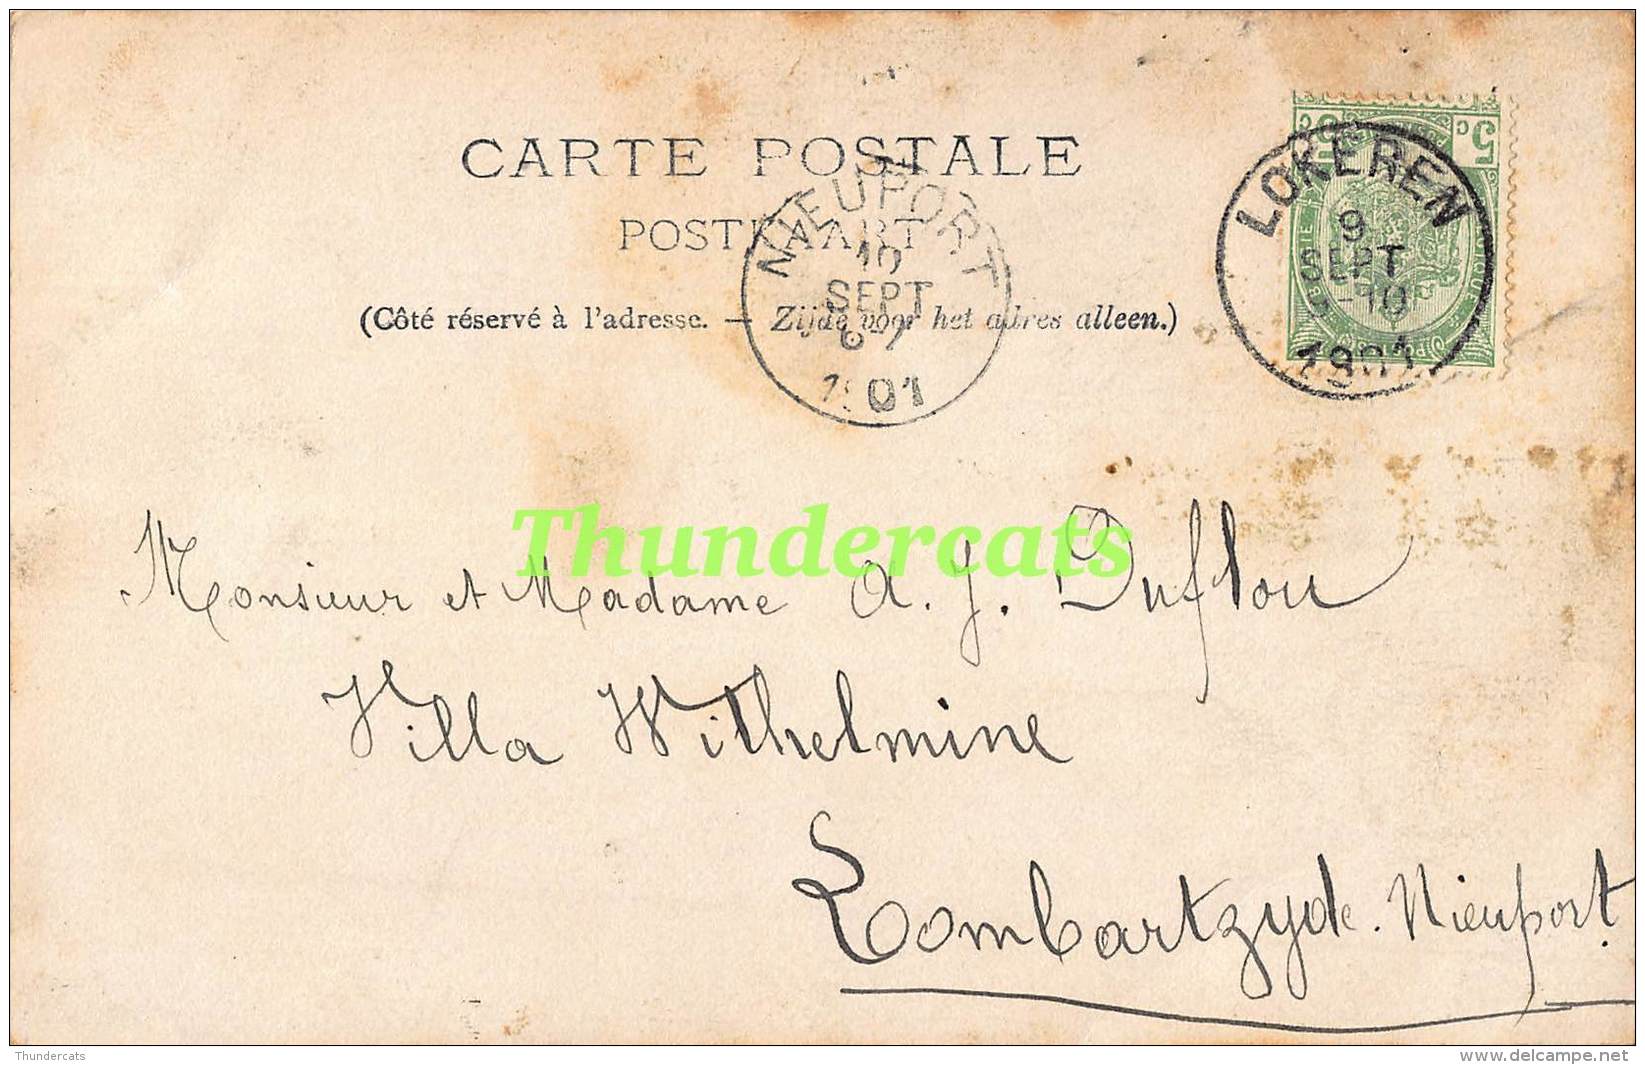 CARTE POSTALE
POSTKAART
(Côté réservé à l'adresse. — Zijde voor het adres alleen.)
NIEUPORT
10
SEPT
6-7
1901
LOKEREN
9
SEPT
9-10
1901
5 c
c 5
Thundercats
Monsieur et Madame A. J. Duflou
Villa Wilhelmine
Lombartzyde. Nieuport.
Thundercats
www.delcampe.net